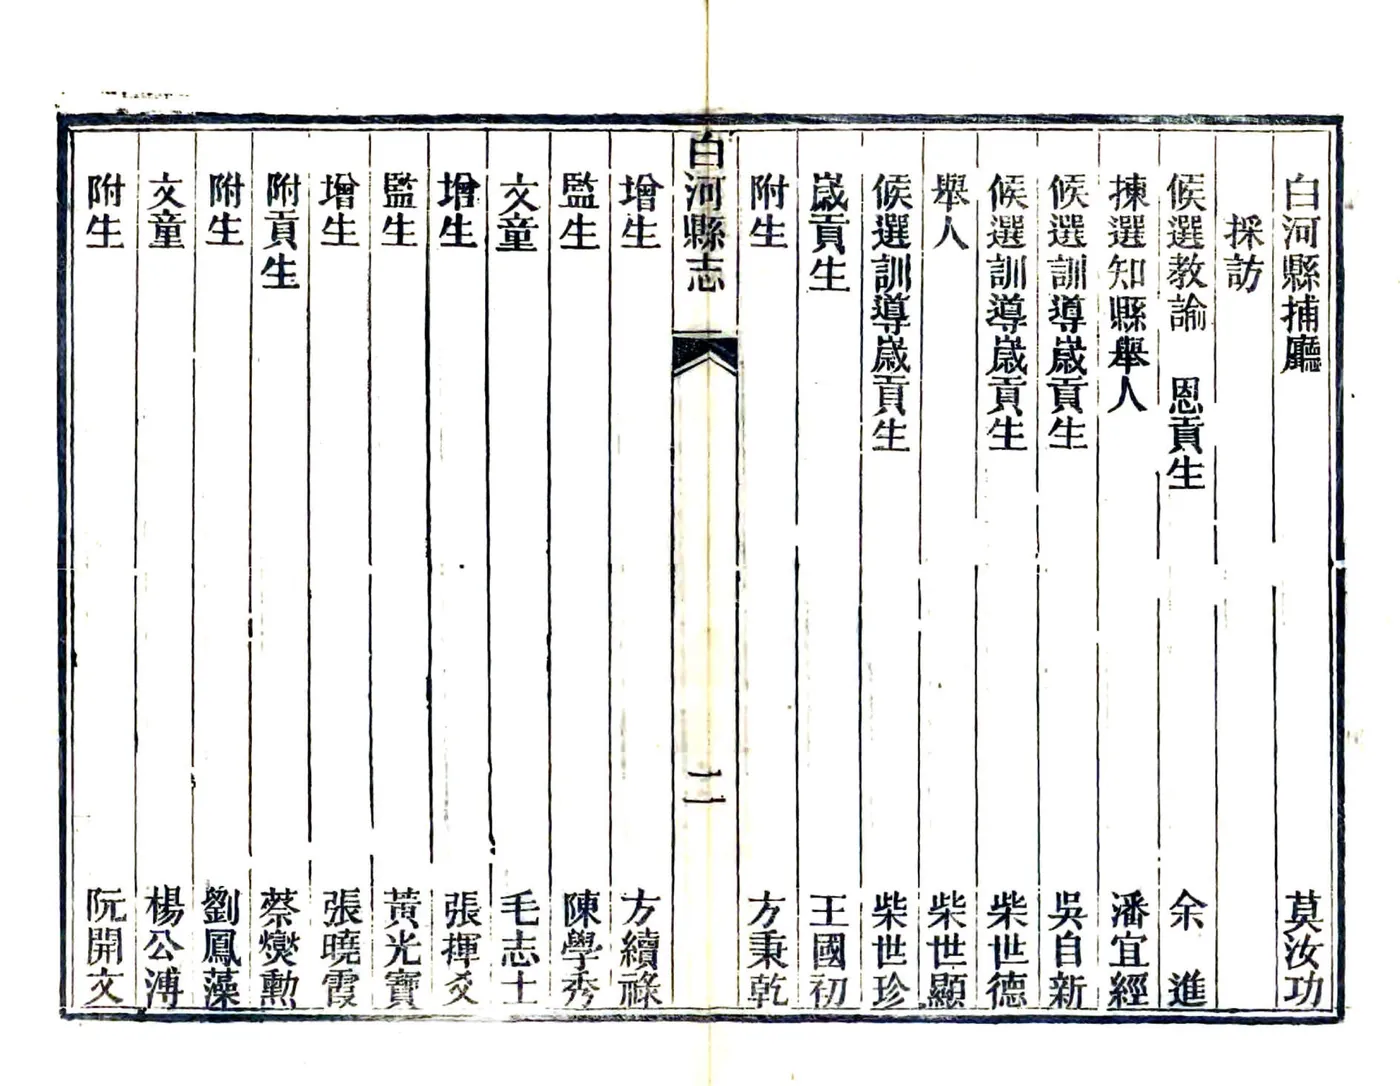 白河縣捕廳 莫汝功
採訪
候選教諭 恩貢生 余 進
揀選知縣舉人 潘宜經
候選訓導歲貢生 吳自新
候選訓導歲貢生 柴世德
舉人 柴世顯
候選訓導歲貢生 柴世珍
歲貢生 王國初
附生 方秉乾
白河縣志 二
增生 方續祿
監生 陳學秀
文童 毛志士
增生 張揮爻
監生 黃光寶
增生 張曉霞
附貢生 蔡燮勳
附生 劉鳳藻
文童 楊公溥
附生 阮開文